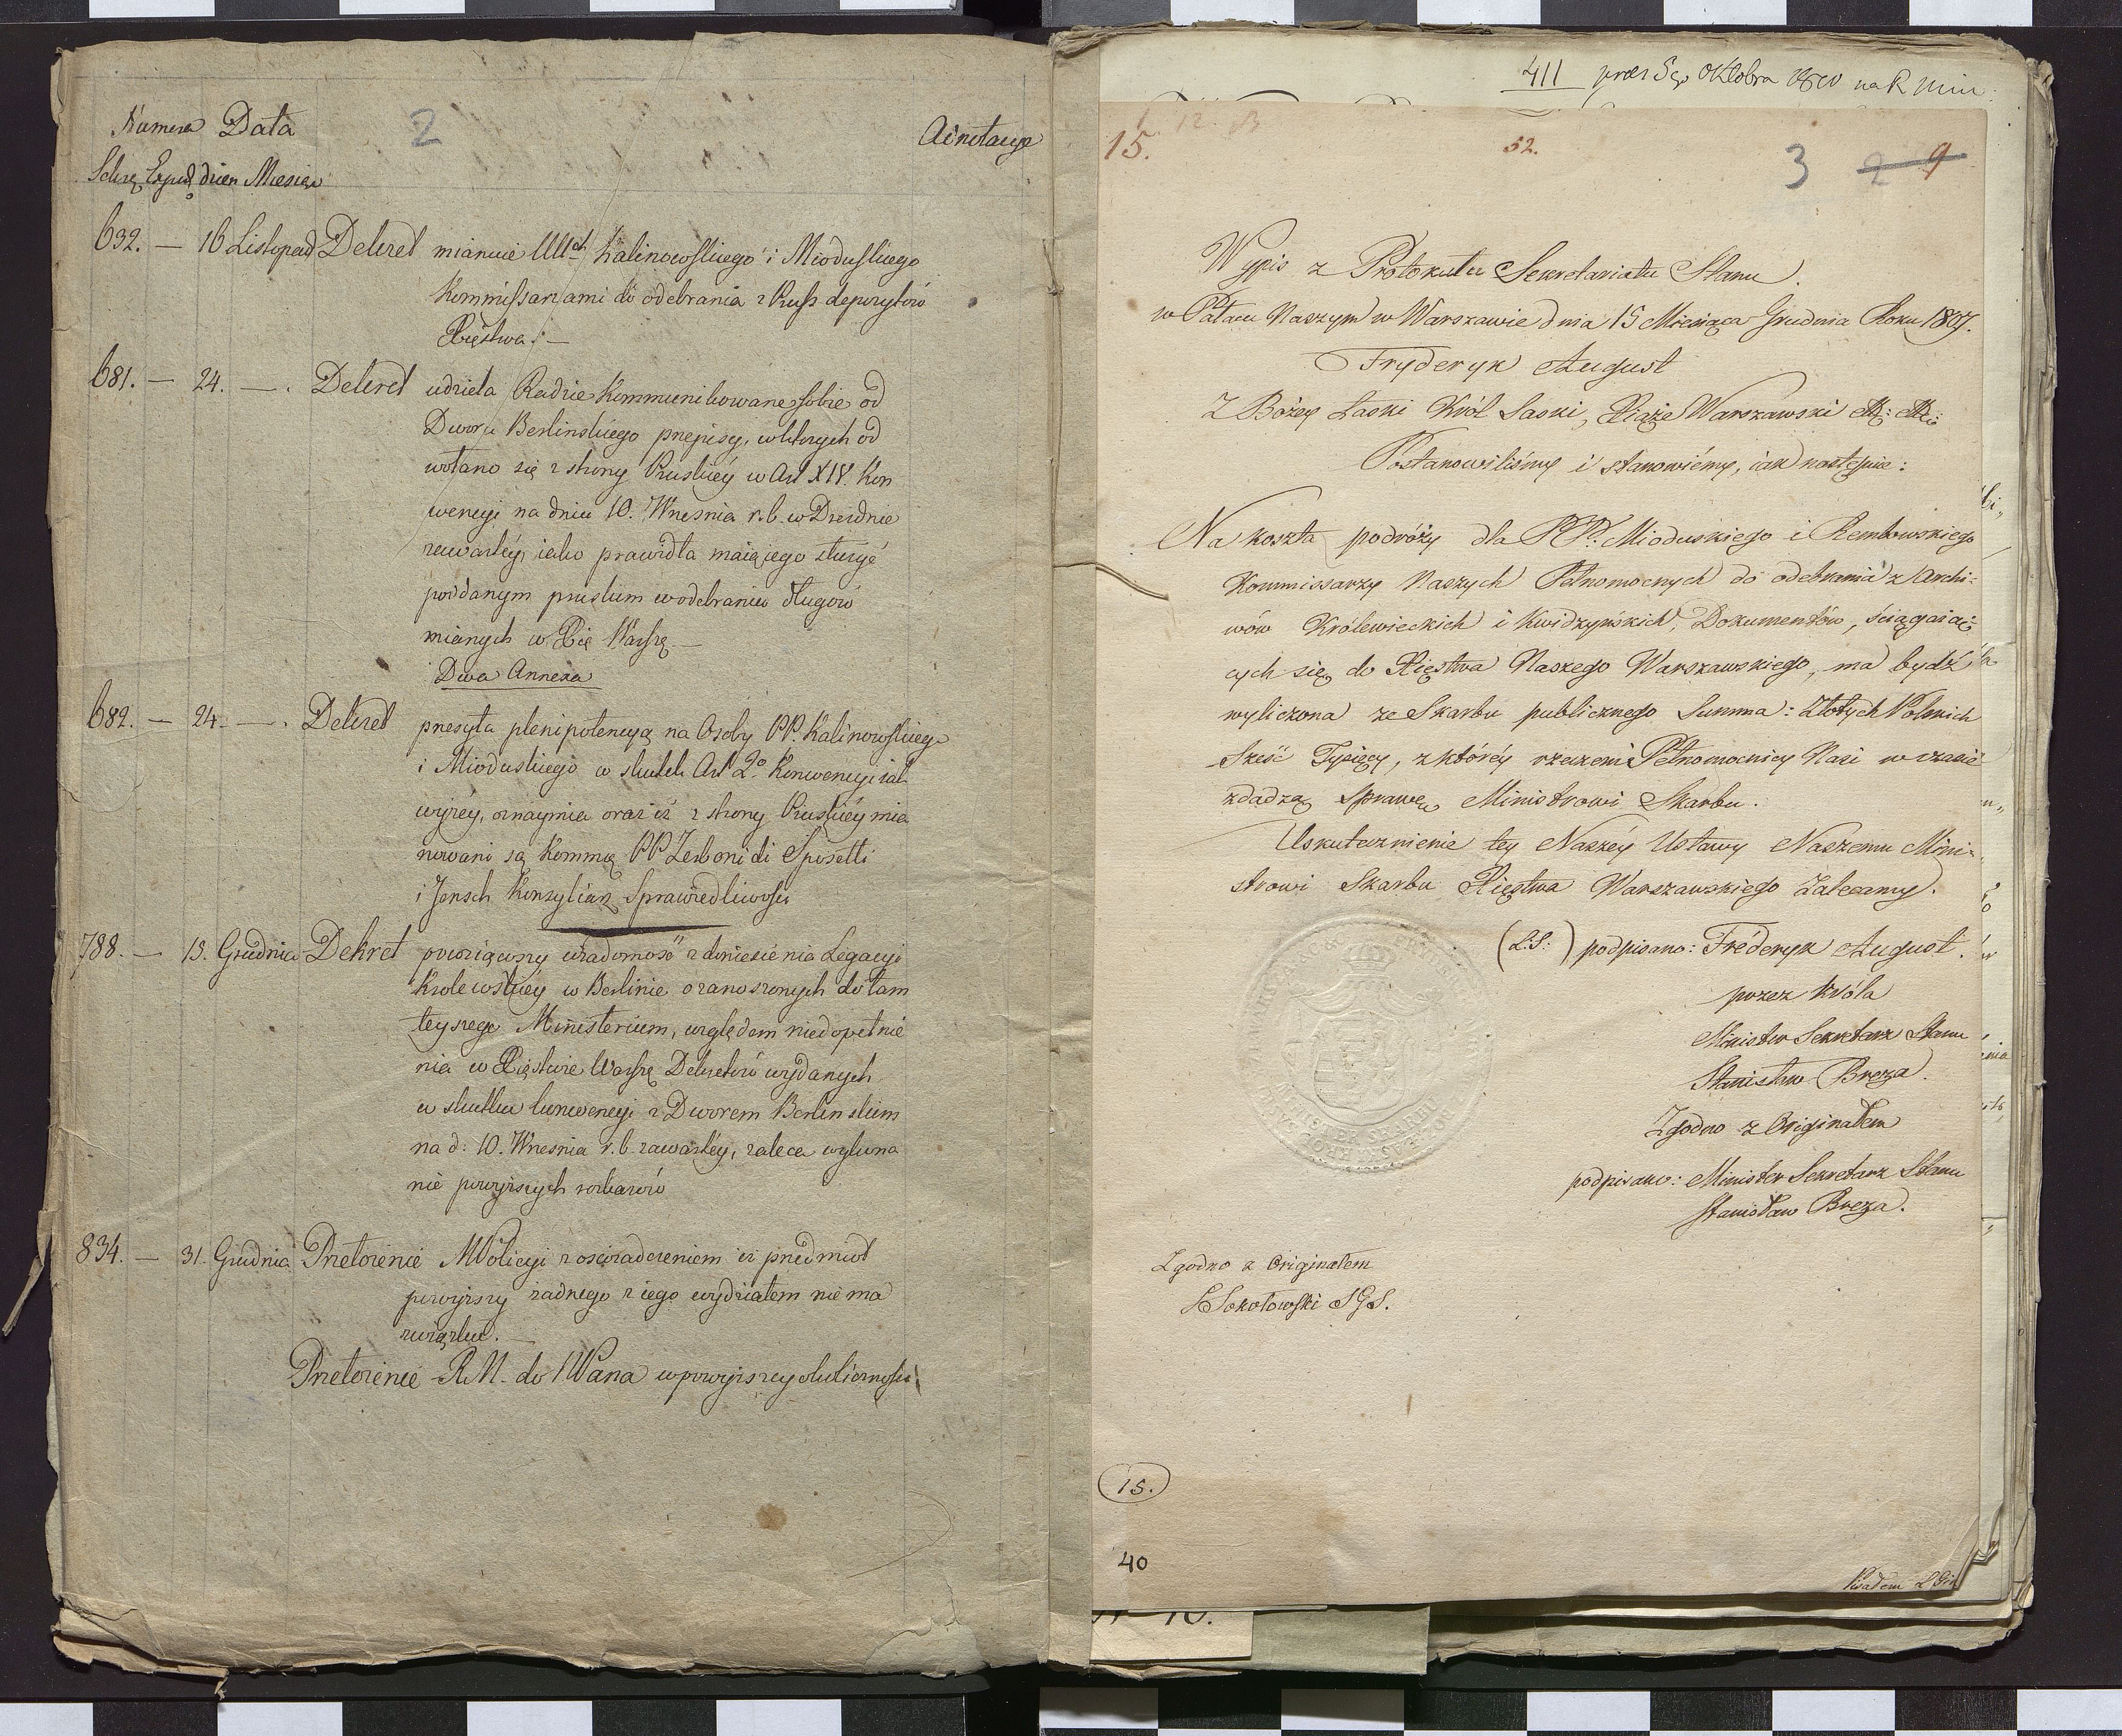 Numera Data
2
Adnotacye
Sekrę Exped dzien Miesiąc
632. — 16 Listopad Dekret mianuie Kalinowskiego i Mioduskiego
Kommissarzami do odebrania z Pruss depozytow
Xięstwa. —
681. — 24. — . Dekret udziela Radzie Kommunikowane sobie od
Dworu Berlinskiego przepisy, w ktorych od
wołano się z strony Pruskiéy w Art XIV. Kon
wencyi na dniu 10. Wrzesnia r. b. w Dreźnie
zawartéy, iako prawidła maiącego służyć
poddanym pruskim w odebraniu długow
mianych w Xię Warszę. —
Dwa Annexa
682. — 24. — . Dekret przesyła plenipotencyą na Osoby PP. Kalinowskiego
i Mioduskiego w skutek Art 2º Konwencyi iak
wyżéy, oznaymia oraz iż z strony Pruskiéy mia
nowani są Kommię PP Zerboni di Sposetti
i Jensch Konsyliarz Sprawiedliwości
788. — 15. Grudnia Dekret powziąwszy wiadomość z doniesienia Legacyi
Krolewskiéy w Berlinie o zanoszonych do tam
teyszego Ministerium, względem niedopełnie
nia w Xięstwie Warszę Dekretów wydanych
w skutku konwencyi z Dworem Berlinskim
na d: 10. Wrzesnia r. b. zawartéy, zaleca wykona
nie powyższych rozkazów
834. — 31. Grudnia Przełożenie MPolicyi z oswiadczeniem iż przedmiot
powyższy żadnego z iego wydziałem nie ma
związku. —
Przełożenie R. M. do NPana w powyższéy okoliczności
411 Oktobra
15.
52.
3 2 9
Wypis z Protokułu Sekretariatu Stanu.
w Pałacu Naszym w Warszawie dnia 15 Miesiąca Grudnia Roku 1807.
Fryderyk August
Z Bożey Łaski Król Saski, Xiąże Warszawski &: &:
Postanowiliśmy i stanowiemy, iak następuie:
Na koszta podróży dla PP. Mioduskiego i Rembowskiego
Kommissarzy Naszych Pełnomocnych do odebrania z Archi-
wów Królewieckich i Kwidzyńskich, Dokumentów, ściągaiąc-
cych się do Xięstwa Naszego Warszawskiego, ma bydź
wyliczona ze Skarbu publicznego Summa: Złotych Polskich
Sześć Tysięcy, z któréy rzeczeni Pełnomocnicy Nasi w czasie
zdadzą Sprawę Ministrowi Skarbu.
Uskutecznienie tey Naszéy Ustawy Naszemu Mini-
strowi Skarbu Xięstwa Warszawskiego zalecamy.
(L.S:) podpisano: Fréderyk August.
przez Króla
Minister Sekretarz Stanu
Stanisław Breza.
Zgodno z Originałem
podpisano: Minister Sekretarz Stanu
Stanisław Breza.
Zgodno z Originałem
Sokołowski SGS.
15.
40
Pisałem